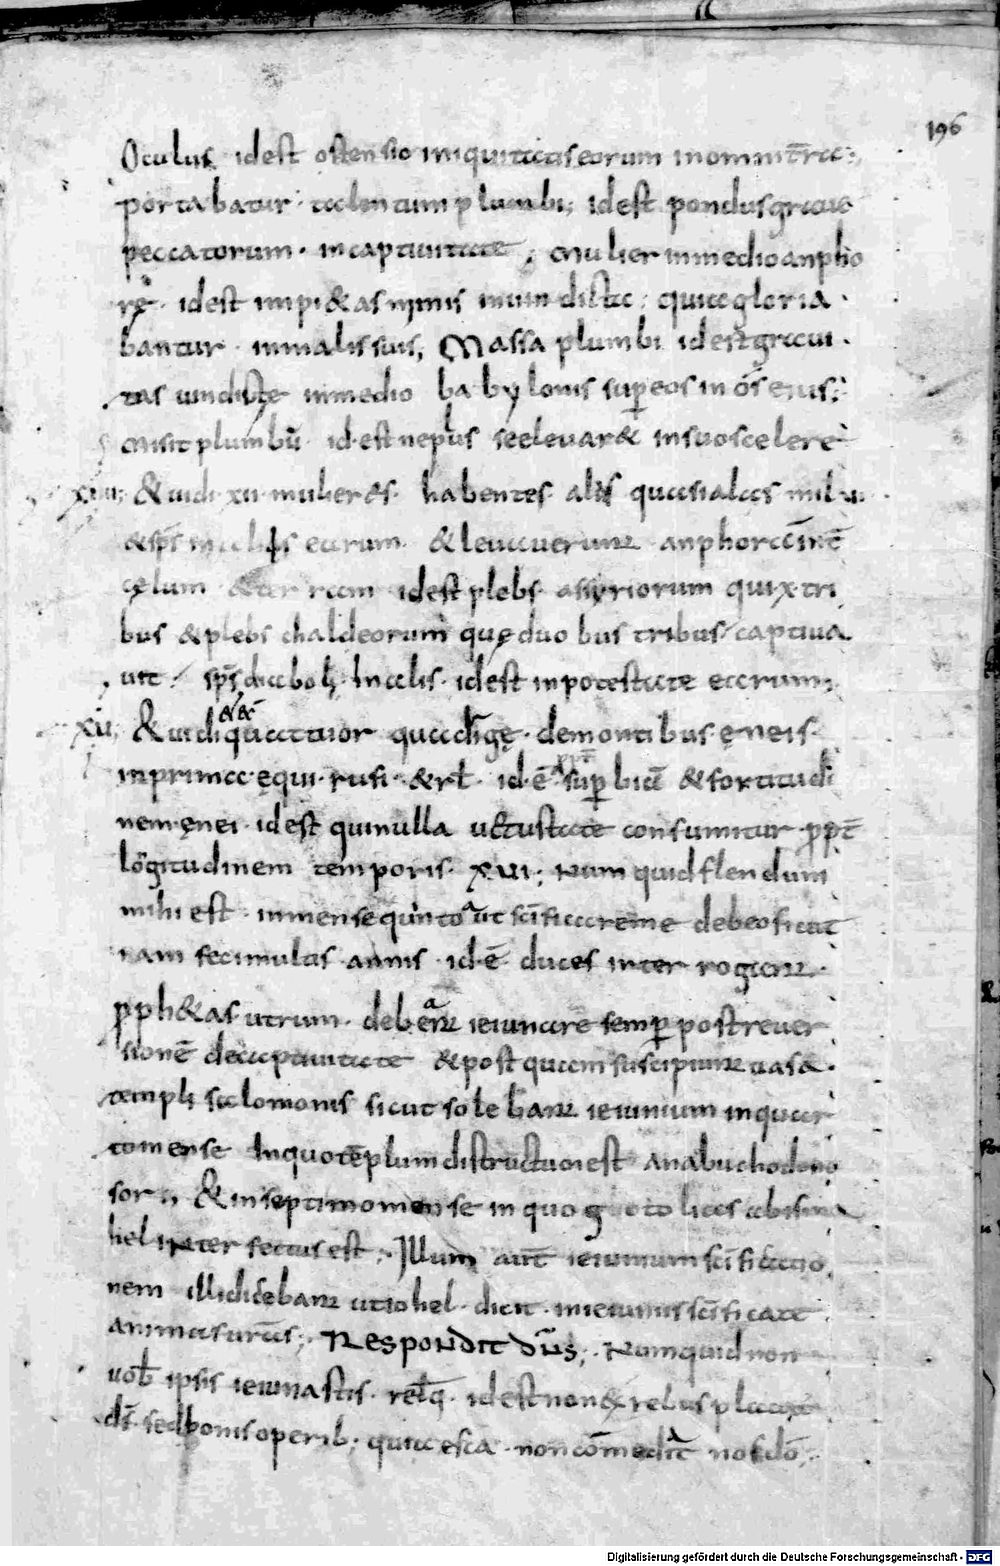 196
Oculus idest ostensio iniquitatis eorum in omni t̄ra;
portabatur talentum plumbi; idest pondus graue
peccatorum in captiuitate; Mulier in medio anpho
rę idest impi&as nimis inmundicta; quia gloria
bantur in malis suis, Massa plumbi idest graui
tas uindictę in medio babylonis sup eos in ōs eius;
misit plumbū id est ne plus se eleuar& in suo scelere
XIIII; & uidi xii mulier&s habentes alas quasi alas milui
& sps̄ in alis earum & leuauerunt anphoram int̄
cęlum & terram idest plebs assyriorum qui x tri
bus & plebs chaldeorum quę duobus tribus captiua
uit sps̄ diaboli; In alis idest in potestate earum;
XV; & uidi quattuor quadrigę de montibus ęneis
in prima ęqui rufi & rł id ē sup biā & fortitudi
nem ęnei idest qui nulla uetustate consumitur ppt̄
lōgitudinem temporis XVI; Numquid flendum
mihi est in mense quinto aut sc̄ificare me debeo sicut
iam feci multis annis id ē duces interrogant
pph&as utrum deberent ieiunare semp post reuer
sionē de captiuitate & postquam suscipiunt uasa
templi salomonis sicut solebant ieiunium in quar
to mense In quo tēplum distructum est a nabuchodono
sor;, & in septimo mense in quo godolias ab isma
hel interfectus est; Illum aut̄ ieiunium sc̄ificatio
nem illi dicebant ut iohel dicit in ieiuniis sc̄ificate
animas ur̄as; Respondit dn̄s; Numquid non
uob̄ ipsis ieiunastis relq̄ idest non & rebus placatur
ds̄ sed bonis operib; quia esca non cōmendat nos dō;
Digitalisierung gefördert durch die Deutsche Forschungsgemeinschaft - DFG